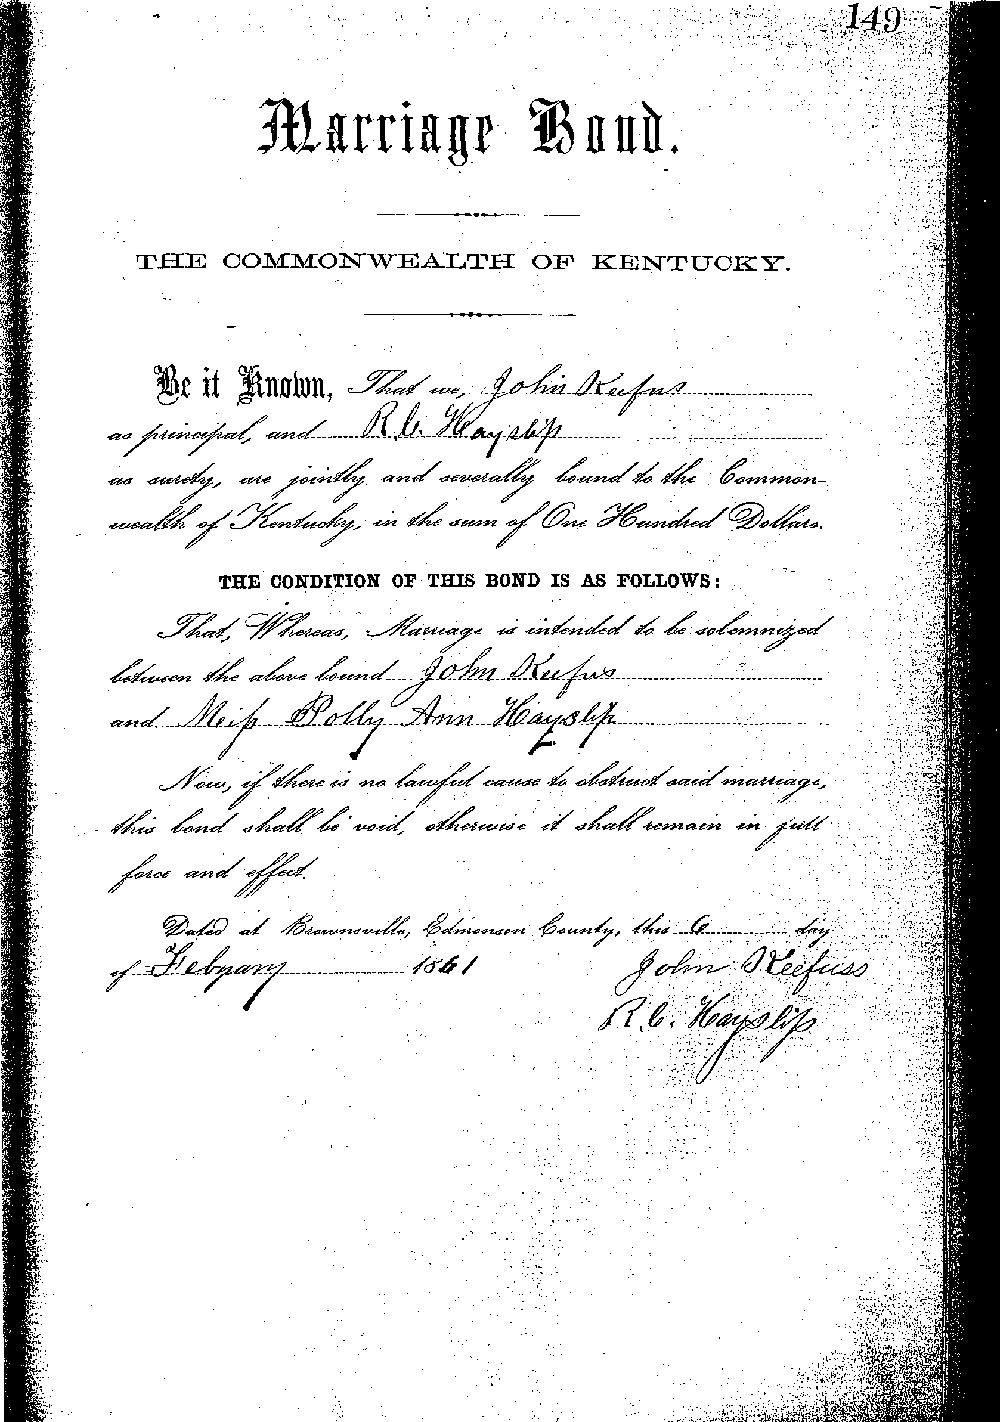 149
Marriage Bond.
THE COMMONWEALTH OF KENTUCKY.
Be it Known, That we, John Keefus
as principal, and R. C. Hayslip
as surety, are jointly and severally bound to the Common-
wealth of Kentucky, in the sum of One Hundred Dollars.
THE CONDITION OF THIS BOND IS AS FOLLOWS:
That, Whereas, Marriage is intended to be solemnized
between the above bound John Keefus
and Miss Polly Ann Hayslip
Now, if there is no lawful cause to obstruct said marriage,
this bond shall be void, otherwise it shall remain in full
force and effect.
Dated at Brownsville, Edmonson County, this 6 day
of Febuary 1861
John Keefuss
R. C. Hayslip